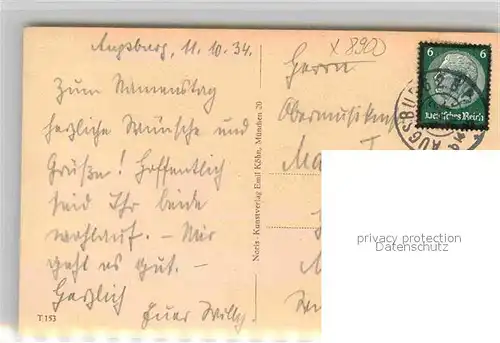 Augsburg, 11.10.34.
Zum Namenstag
herzliche Wünsche und
Grüße! Hoffentlich
seid Ihr beide
wohlauf. – Mir
geht es gut. –
Herzlich
Euer Willy.
T 153
Noris-Kunstverlag Emil Köhn, München 20
x 8900
Herrn
6 6
Deutsches Reich
AUGSBURG
privacy protection
Datenschutz